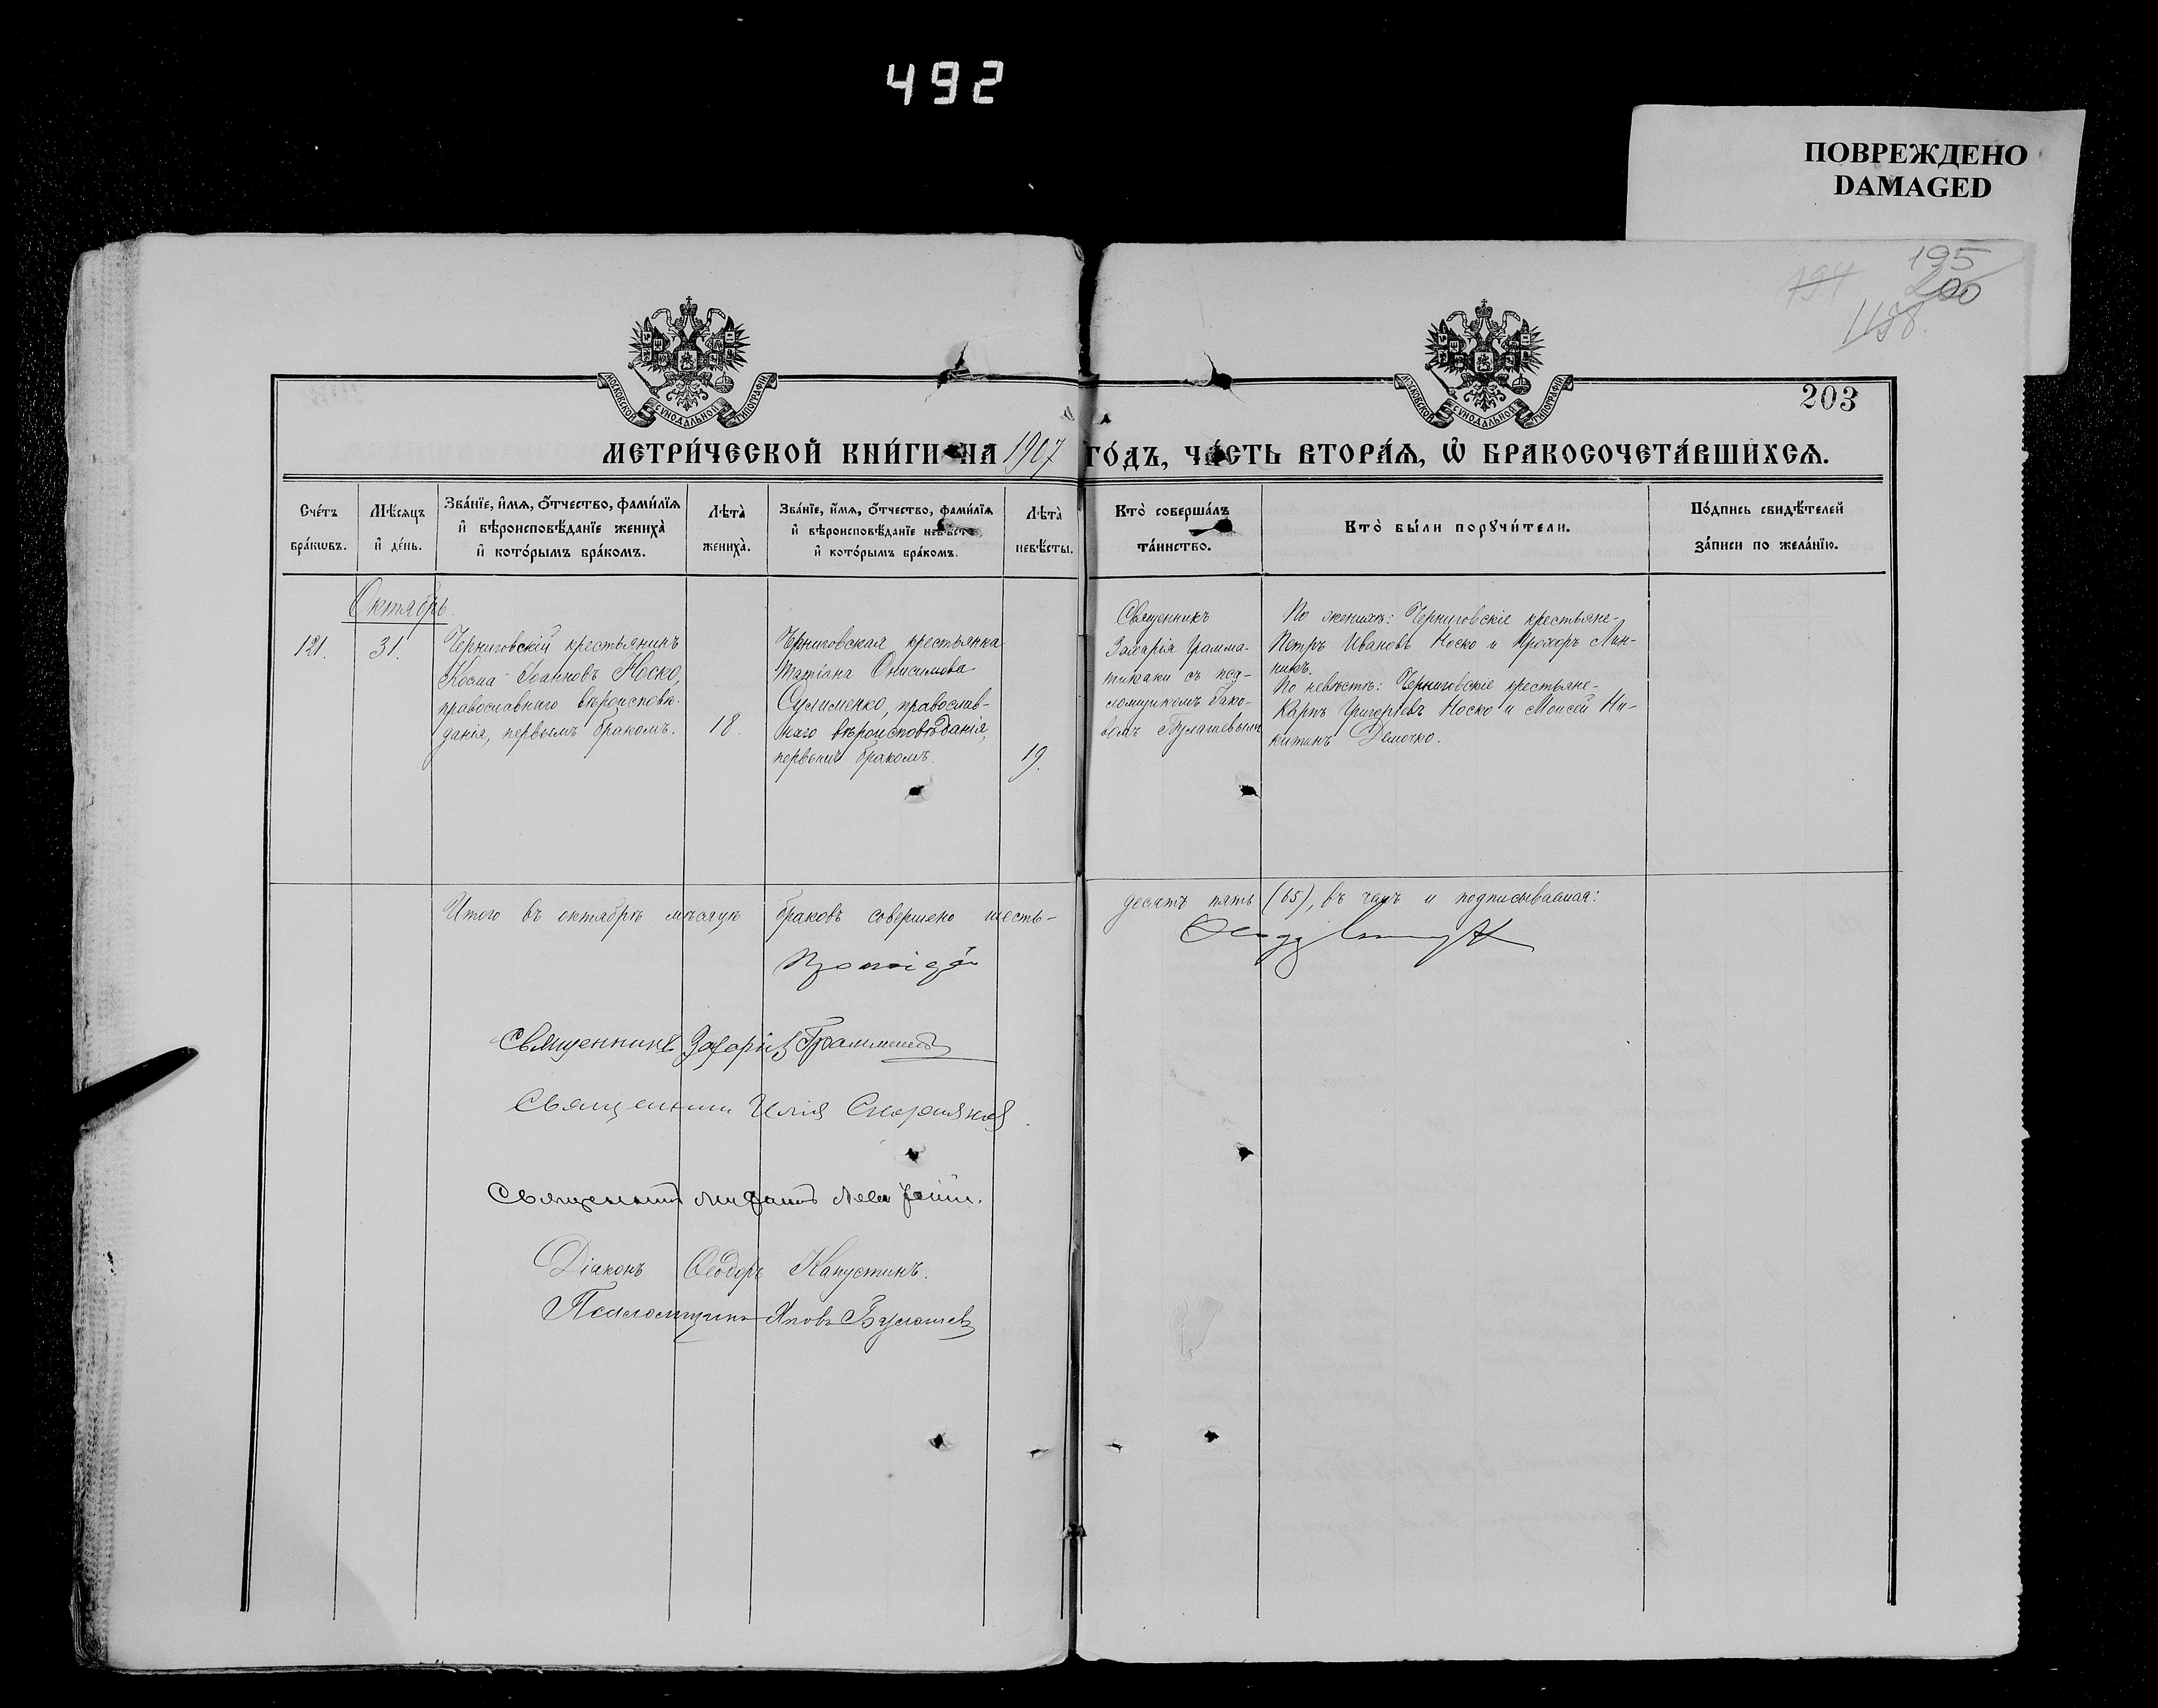 492
ПОВРЕЖДЕНО
DAMAGED
195
194
200
1198.
203
МОСКОВСКОЙ СѴНОДАЛЬНОЙ ТИПОГРАФІИ
МОСКОВСКОЙ СѴНОДАЛЬНОЙ ТИПОГРАФІИ
МЕТРИ́ЧЕСКОЙ КНИ́ГИ НА 1907 ГО́ДЪ, ЧА́СТЬ ВТОРА́Я, Ѡ҆ БРАКОСОЧЕТА́ВШИХСЯ.
Сче́тъ
бра́кѡвъ.
Мѣ́сяцъ
и҆ де́нь.
Зва́нїе, и҆́мя, ѻ҆́тчество, фами́лїя
и҆ вѣроисповѣ́данїе жениха̀
и҆ кото́рымъ бра́комъ.
Лѣта̀
жениха̀.
Зва́нїе, и҆́мя, ѻ҆́тчество, фами́лїя
и҆ вѣроисповѣ́данїе невѣсты,
и҆ кото́рымъ бра́комъ.
Лѣта̀
невѣ́сты.
Кто̀ соверша́лъ
та́инство.
Кто̀ бы́ли порꙋчи́тели.
По́дпись свидѣ́телей
за́писи по жела́нїю.
Октябрь.
121.
31.
Черниговскій крестьянинъ
Косма Іоанновъ Носко,
православнаго вѣроисповѣ-
данія, первымъ бракомъ.
18.
Черниговская крестьянка
Татіана Онисимова
Сулименко, православ-
наго вѣроисповѣданія,
первымъ бракомъ.
19.
Священникъ
Захарія Грамма-
тикаки съ пса-
ломщикомъ Іако-
вомъ Булашевымъ
По женихѣ: Черниговскіе крестьяне-
Петръ Ивановъ Носко и Прохоръ Лин-
никъ.
По невѣстѣ: Черниговскіе крестьяне-
Карпъ Григорьевъ Носко и Моисей Ни-
китинъ Демочко.
Итого въ октябрѣ мѣсяцѣ браковъ совершено шесть-
десятъ пять (65), въ чемъ и подписываемся:
Протоіерей
Священникъ Захарія Граммат
Священникъ Илія Скорняковъ.
Священникъ
Діаконъ Ѳеодоръ Капустинъ.
Псаломщикъ Яковъ Булашевъ